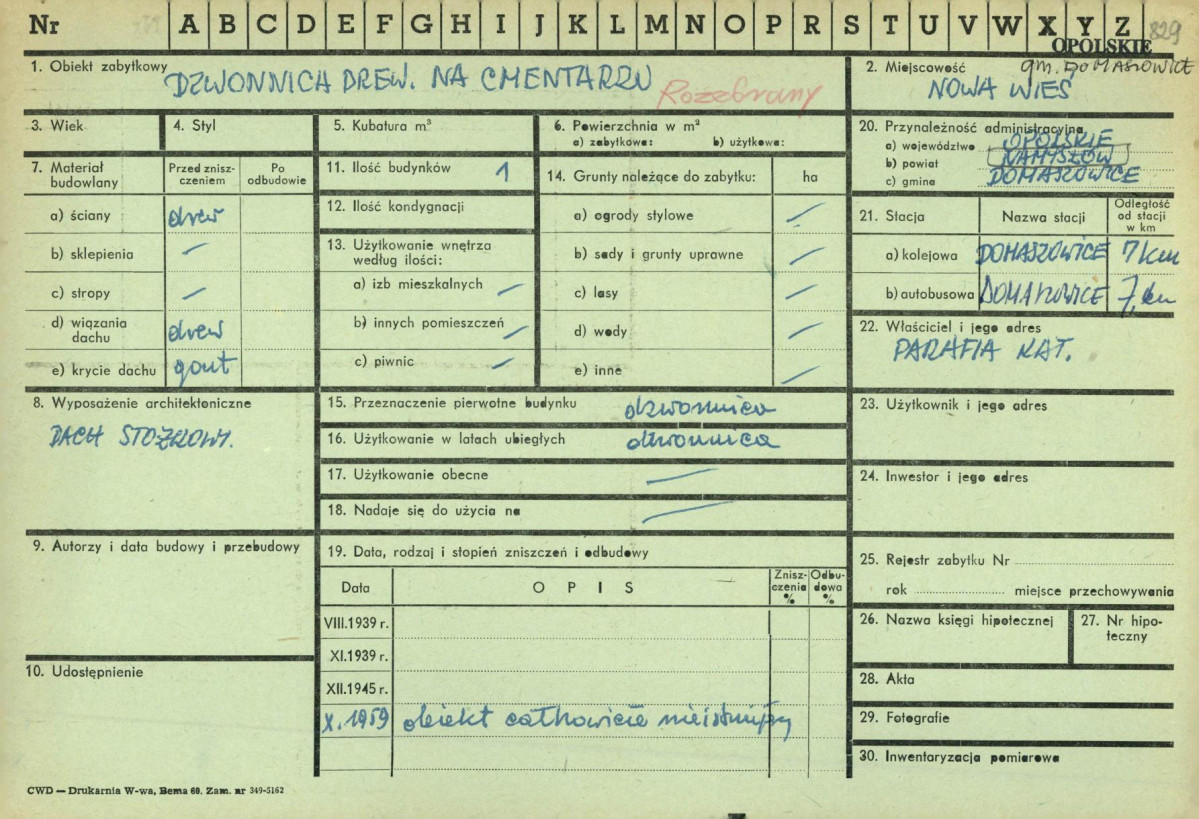 Nr A B C D E F G H I J K L M N O P R S T U V W X Y Z 829
OPOLSKIE
1. Obiekt zabytkowy DZWONNICA DREW. NA CMENTARZU
Rozebrany
2. Miejscowość gm. DOMASZOWICE
NOWA WIEŚ
3. Wiek
4. Styl
5. Kubatura m³
6. Powierzchnia w m²
a) zabytkowa: b) użytkowa:
20. Przynależność administracyjna
a) województwo OPOLSKIE
b) powiat NAMYSŁÓW
c) gmina DOMASZOWICE
7. Materiał budowlany
Przed znisz-
czeniem
Po
odbudowie
a) ściany drew
b) sklepienia —
c) stropy —
d) wiązania
dachu drew
e) krycie dachu gont
11. Ilość budynków 1
12. Ilość kondygnacji
13. Użytkowanie wnętrza
według ilości:
a) izb mieszkalnych —
b) innych pomieszczeń —
c) piwnic —
14. Grunty należące do zabytku: ha
a) ogrody stylowe —
b) sady i grunty uprawne —
c) lasy —
d) wody —
e) inne —
21. Stacja
Nazwa stacji
Odległość
od stacji
w km
a) kolejowa DOMASZOWICE 7 km
b) autobusowa DOMASZOWICE 7 km
22. Właściciel i jego adres
PARAFIA KAT.
8. Wyposażenie architektoniczne
DACH STOŻKOWY.
15. Przeznaczenie pierwotne budynku dzwonnica
16. Użytkowanie w latach ubiegłych dzwonnica
17. Użytkowanie obecne —
18. Nadaje się do użycia na —
23. Użytkownik i jego adres
24. Inwestor i jego adres
9. Autorzy i data budowy i przebudowy
19. Data, rodzaj i stopień zniszczeń i odbudowy
Data
OPIS
Znisz-
czenia
%
Odbu-
dowa
%
VIII.1939 r.
XI.1939 r.
XII.1945 r.
X.1959 obiekt całkowicie nieistniejący
10. Udostępnienie
25. Rejestr zabytku Nr
rok miejsce przechowywania
26. Nazwa księgi hipotecznej
27. Nr hipo-
teczny
28. Akta
29. Fotografie
30. Inwentaryzacja pomiarowa
CWD — Drukarnia W-wa, Bema 60. Zam. nr 349-5162